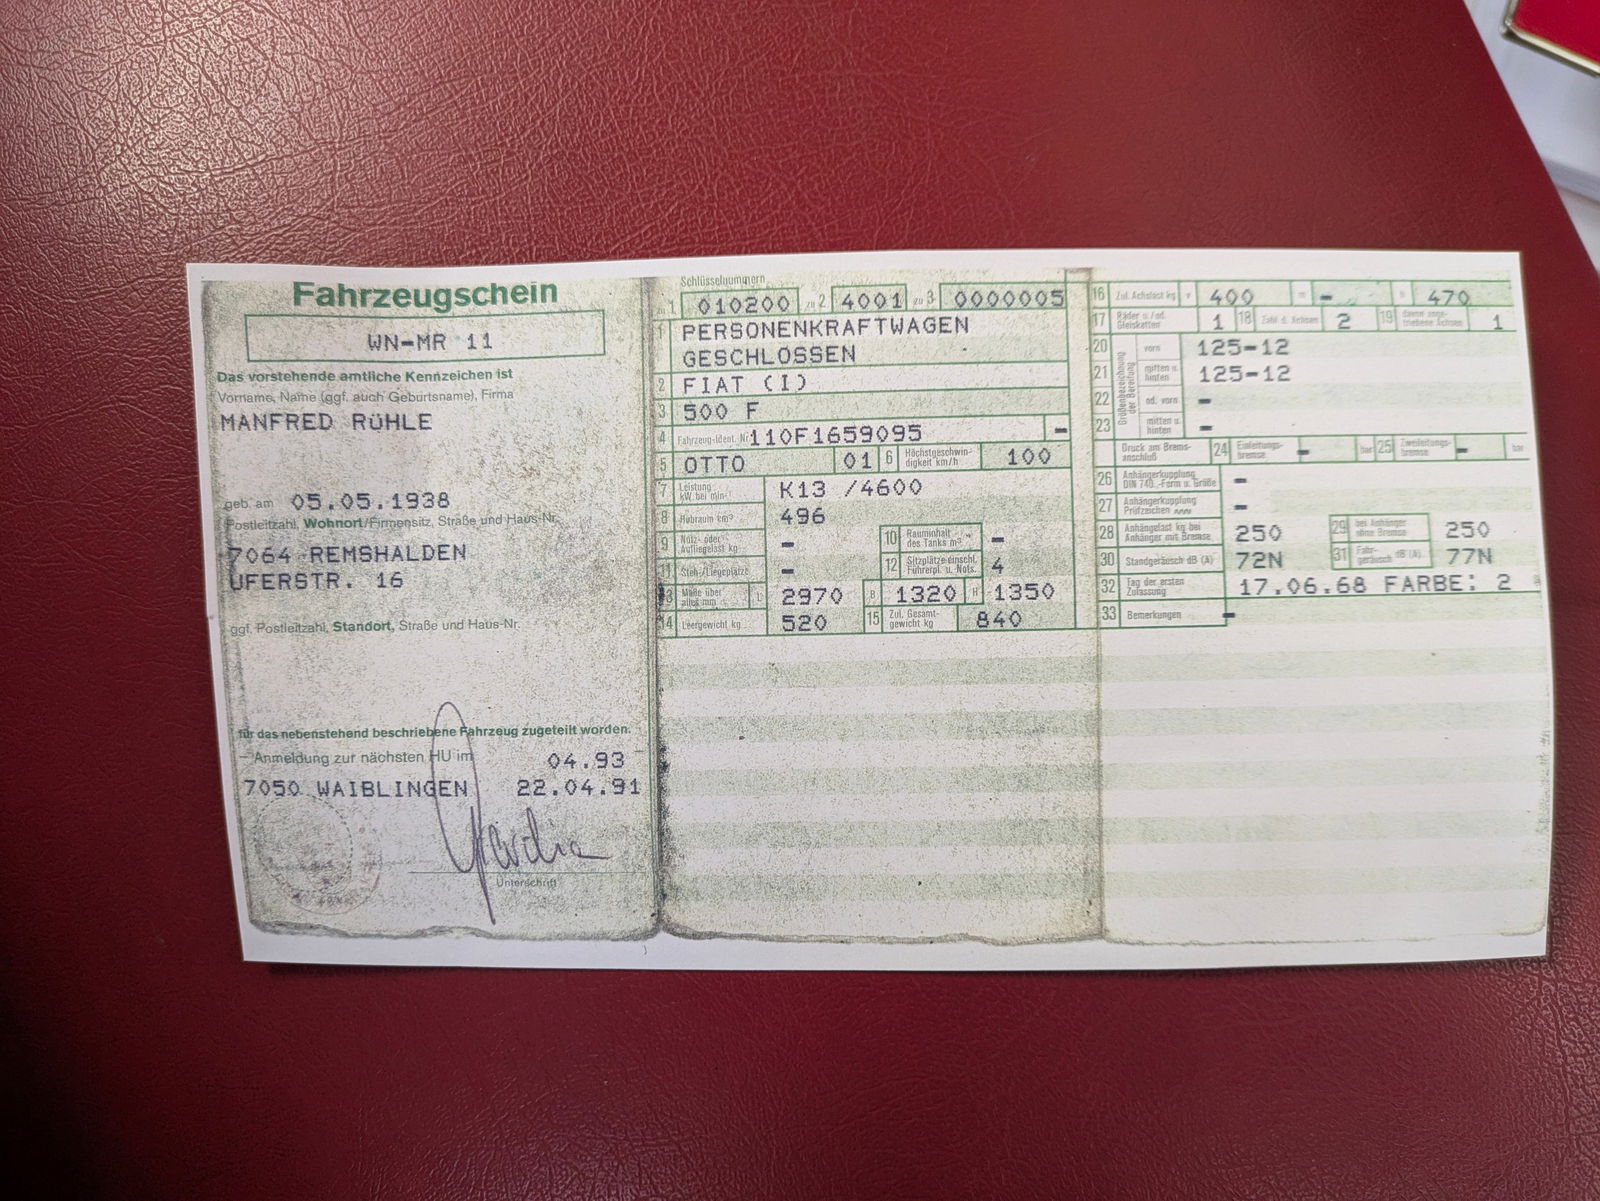 Fahrzeugschein
WN-MR 11
Das vorstehende amtliche Kennzeichen ist
Vorname, Name (ggf. auch Geburtsname), Firma
MANFRED RÜHLE
geb. am 05.05.1938
Postleitzahl, Wohnort/Firmensitz, Straße und Haus-Nr.
7064 REMSHALDEN
UFERSTR. 16
ggf. Postleitzahl, Standort, Straße und Haus-Nr.
für das nebenstehend beschriebene Fahrzeug zugeteilt worden.
Anmeldung zur nächsten HU im 04.93
7050 WAIBLINGEN 22.04.91
Unterschrift
Schlüsselnummern
zu 1 010200 zu 2 4001 zu 3 0000005
1 PERSONENKRAFTWAGEN
GESCHLOSSEN
2 FIAT (I)
3 500 F
4 Fahrzeug-Ident. Nr. 110F1659095 -
5 OTTO 01 6 Höchstgeschwin-digkeit km/h 100
7 Leistung kW bei min-1 K13 /4600
8 Hubraum cm³ 496
9 Nutz- oder Aufliegelast kg - 10 Rauminhalt des Tanks m³ -
11 Steh-/Liegeplätze - 12 Sitzplätze einschl. Führerpl. u. Nots. 4
13 Maße über alles mm L 2970 B 1320 H 1350
14 Leergewicht kg 520 15 Zul. Gesamt-gewicht kg 840
16 Zul. Achslast kg v 400 m - h 470
17 Räder u./od. Gleisketten 1 18 Zahl d. Achsen 2 19 davon ange-triebene Achsen 1
Größenbezeichnung der Bereifung
20 vorn 125-12
21 mitten u. hinten 125-12
22 od. vorn -
23 mitten u. hinten -
Druck am Brems-anschluß 24 Einleitungs-bremse - bar 25 Zweileitungs-bremse - bar
26 Anhängerkupplung DIN 740.., Form u. Größe -
27 Anhängerkupplung Prüfzeichen -
28 Anhängelast kg bei Anhänger mit Bremse 250 29 bei Anhänger ohne Bremse 250
30 Standgeräusch dB (A) 72N 31 Fahr-geräusch dB (A) 77N
32 Tag der ersten Zulassung 17.06.68 FARBE: 2
33 Bemerkungen -